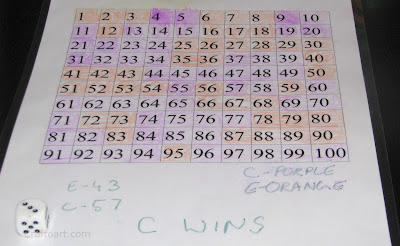 1 2 3 4 5 6 7 8 9 10
11 12 13 14 15 16 17 18 19 20
21 22 23 24 25 26 27 28 29 30
31 32 33 34 35 36 37 38 39 40
41 42 43 44 45 46 47 48 49 50
51 52 53 54 55 56 57 58 59 60
61 62 63 64 65 66 67 68 69 70
71 72 73 74 75 76 77 78 79 80
81 82 83 84 85 86 87 88 89 90
91 92 93 94 95 96 97 98 99 100
C-PURPLE
E-43 E-ORANGE
C-57
C WINS